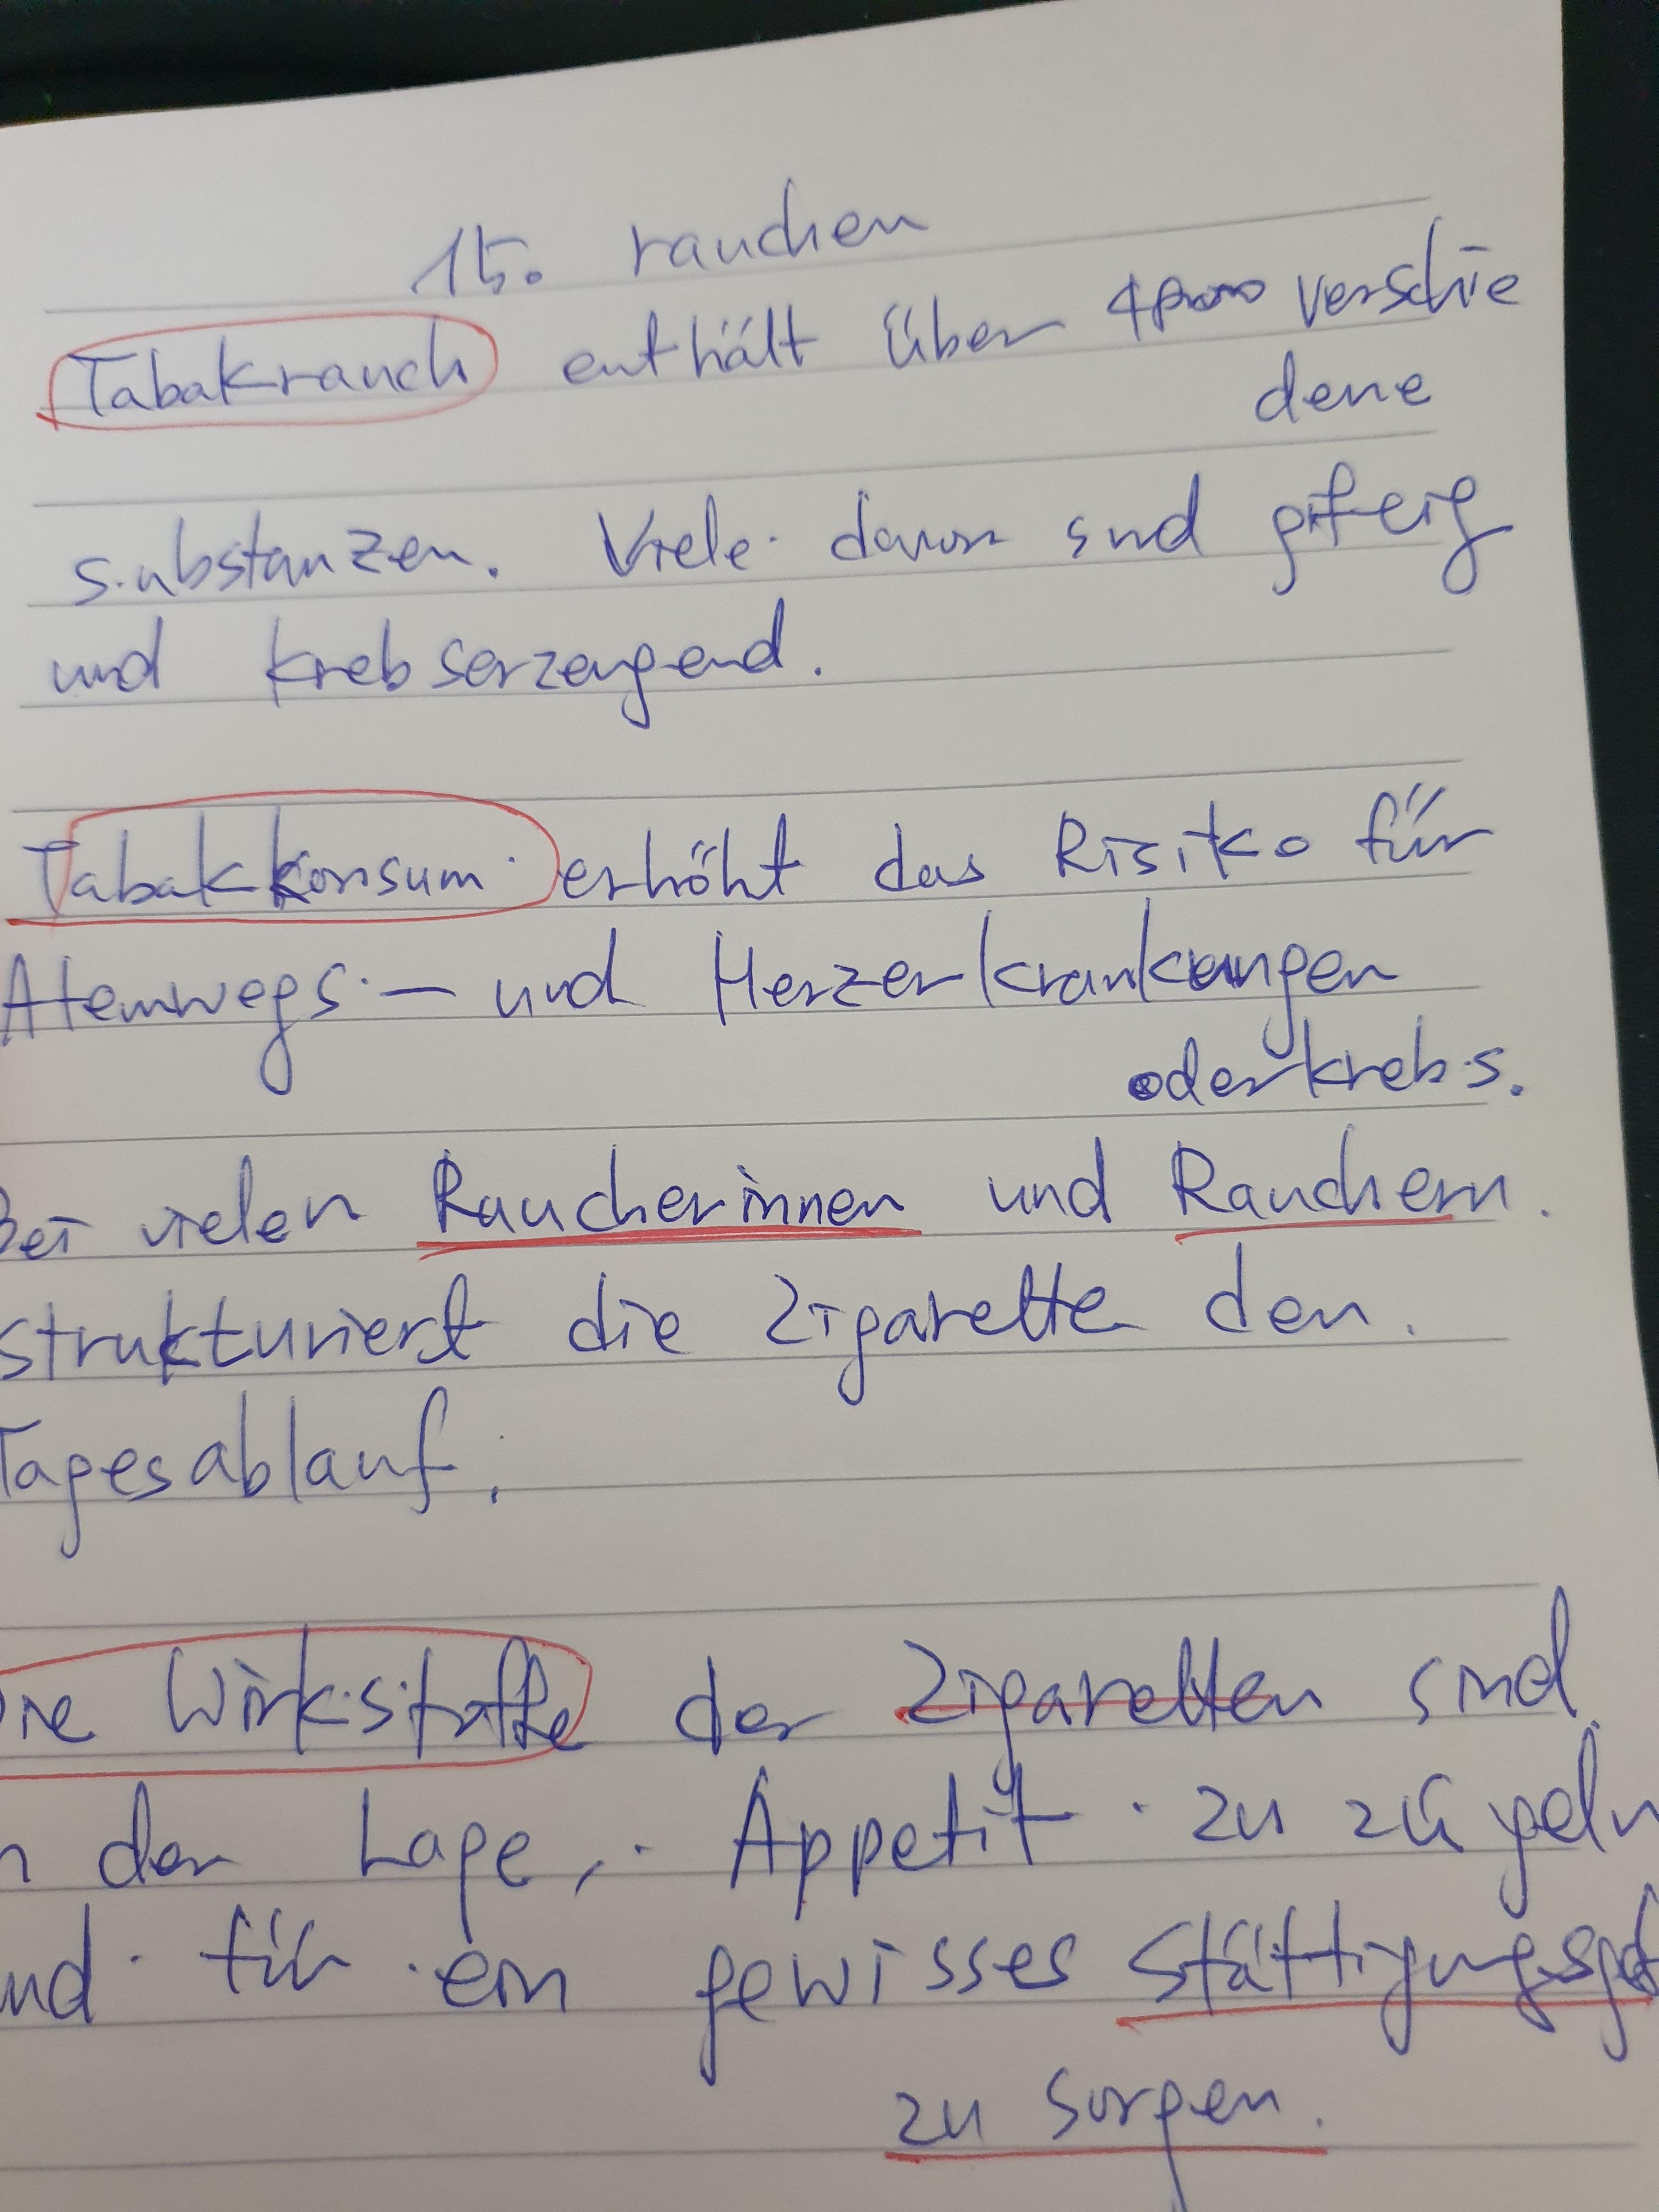 15. rauchen
Tabakrauch enthält über verschie
dene
substanzen. Viele davon sind gifteig
und krebserzeugend.
Tabakkonsum erhöht das Risiko für
Atemwegs - und Herzerkrankungen
oder krebs.
Bei vielen Raucherinnen und Rauchern.
strukturiert die Zigarette den.
Tagesablauf.
Die Wirkstoffe der Zigaretten sind
der Lage, Appetit zu zügeln
für ein gewisses
zu sorgen.